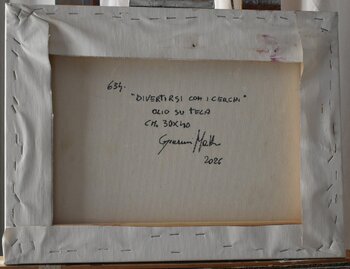 634.
"DIVERTIRSI CON I CERCHI"
OLIO SU TELA
CM. 30X40
2026